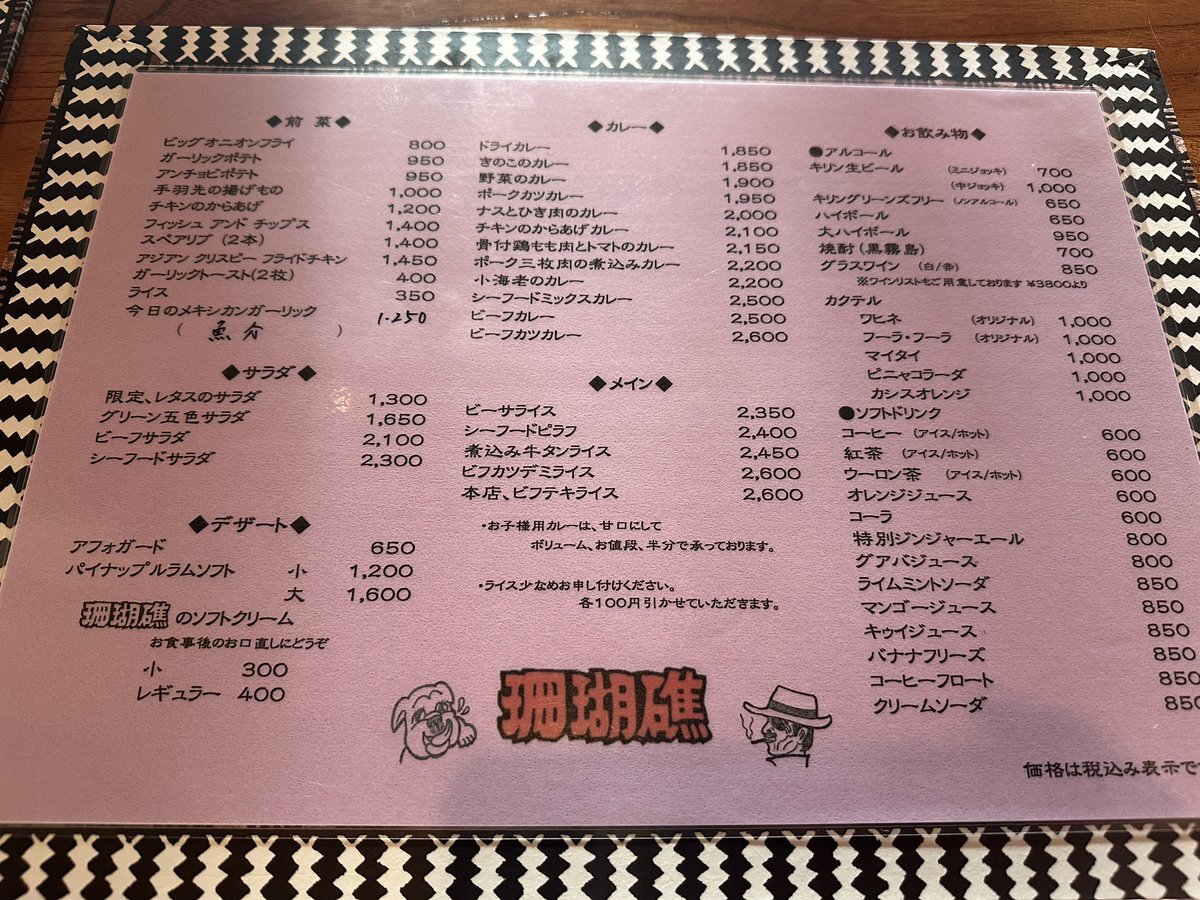 ◆前 菜◆
ビッグオニオンフライ 800
ガーリックポテト 950
アンチョビポテト 950
手羽先の揚げもの 1,000
チキンのからあげ 1,200
フィッシュ アンド チップス 1,400
スペアリブ(2本) 1,400
アジアン クリスピー フライドチキン 1,450
ガーリックトースト(2枚) 400
ライス 350
今日のメキシカンガーリック 1.250
( 魚介 )
◆サラダ◆
限定、レタスのサラダ 1,300
グリーン五色サラダ 1,650
ビーフサラダ 2,100
シーフードサラダ 2,300
◆デザート◆
アフォガード 650
パイナップルラムソフト 小 1,200
大 1,600
珊瑚礁 のソフトクリーム
お食事後のお口直しにどうぞ
小 300
レギュラー 400
◆カレー◆
ドライカレー 1,850
きのこのカレー 1,850
野菜のカレー 1,900
ポークカツカレー 1,950
ナスとひき肉のカレー 2,000
チキンのからあげカレー 2,100
骨付鶏もも肉とトマトのカレー 2,150
ポーク三枚肉の煮込みカレー 2,200
小海老のカレー 2,200
シーフードミックスカレー 2,500
ビーフカレー 2,500
ビーフカツカレー 2,600
◆メイン◆
ビーサライス 2,350
シーフードピラフ 2,400
煮込み牛タンライス 2,450
ビフカツデミライス 2,600
本店、ビフテキライス 2,600
・お子様用カレーは、甘口にして
ボリューム、お値段、半分で承っております。
・ライス少なめお申し付けください。
各100円引かせていただきます。
珊瑚礁
◆お飲み物◆
●アルコール
キリン生ビール (ミニジョッキ) 700
(中ジョッキ) 1,000
キリングリーンズフリー (ノンアルコール) 650
ハイボール 650
大ハイボール 950
焼酎(黒霧島) 700
グラスワイン (白/赤) 850
※ワインリストもご用意しております ¥3800より
カクテル
ワヒネ (オリジナル) 1,000
フーラ・フーラ (オリジナル) 1,000
マイタイ 1,000
ピニャコラーダ 1,000
カシスオレンジ 1,000
●ソフトドリンク
コーヒー (アイス/ホット) 600
紅茶 (アイス/ホット) 600
ウーロン茶 (アイス/ホット) 600
オレンジジュース 600
コーラ 600
特別ジンジャーエール 800
グアバジュース 800
ライムミントソーダ 850
マンゴージュース 850
キゥイジュース 850
バナナフリーズ 850
コーヒーフロート 850
クリームソーダ 850
価格は税込み表示で